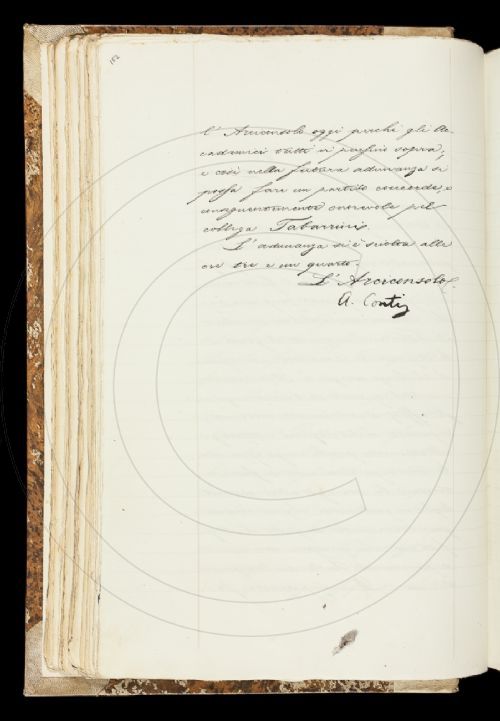 182
l'Arciconsolo oggi perchè gli Ac-
cademici tutti vi pensino sopra,
e così nella futura adunanza si
possa fare un partito concorde, e
conseguentemente onorevole pel
collega Tabarrini.
L'adunanza si è sciolta alle
ore tre e un quarto.
L'Arciconsolo
A. Conti